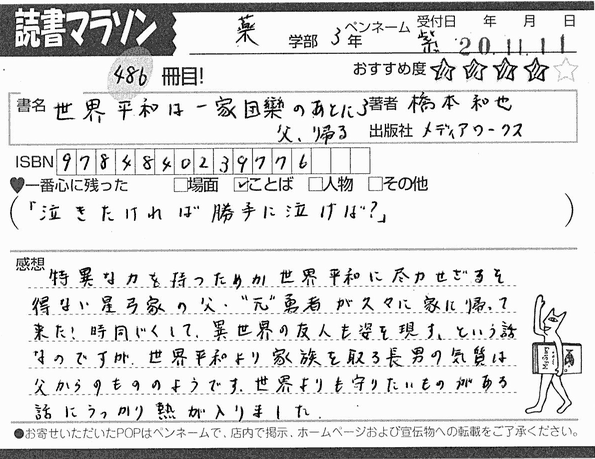 読書マラソン
薬 学部 3年 ペンネーム 紫 受付日 年 月 日
20.11.11
486 冊目!
おすすめ度 ★★★★☆
書名 世界平和は一家団欒のあとに3 著者 橋本和也
父、帰る 出版社 メディアワークス
ISBN 9784840239776
♥一番心に残った □場面 ☑ことば □人物 □その他
(「泣きたければ勝手に泣けば?」)
感想
特異な力を持つためか世界平和に尽力せざるを
得ない星弓家の父・"元"勇者が久々に家に帰って
来た!時同じくして、異世界の友人も姿を現す、という話
なのですが、世界平和より家族を取る長男の気質は
父からのもののようです。世界よりも守りたいものがある
話にうっかり熱が入りました.
●お寄せいただいたPOPはペンネームで、店内で掲示、ホームページおよび宣伝物への転載をご了承ください。